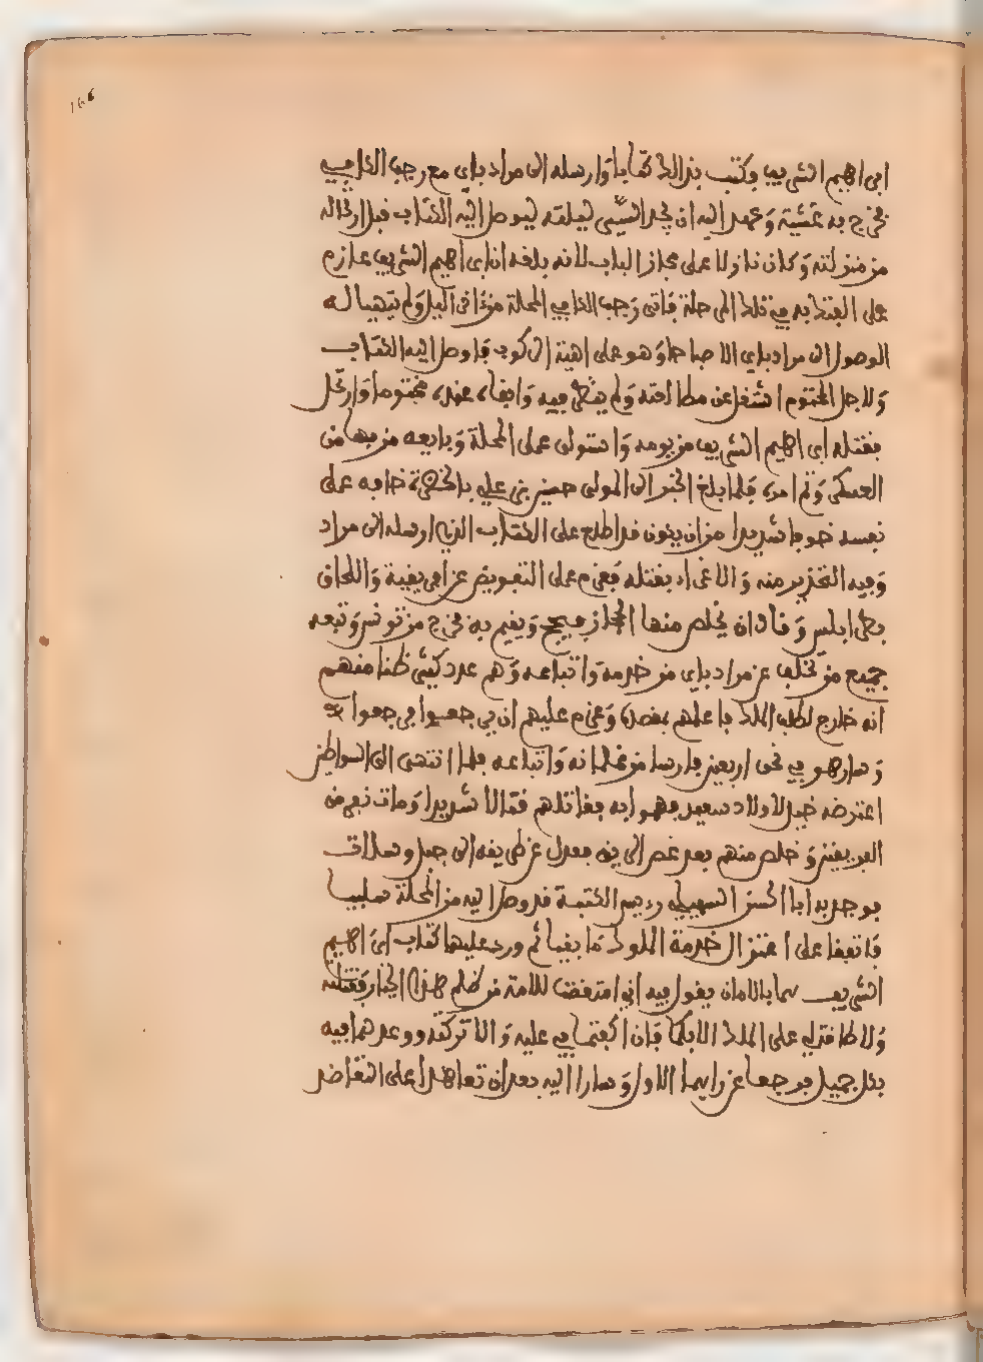 166
ابراهيم الشريف وكتب بذالك كتابا وارسله الى مراد باي مع رجب
فخرج به عشية وعهد اليه ان يجد السير ليوصل اليه الكتاب قبل ارتحاله
من منزلته وكان نازلا على مجاز الباب لانه بلغه ان ابراهيم الشريف عازم
على الفتك به في تلك المرحلة فاتى رجب المحلة في اليل ولم يتهيا له
الوصول الى مراد باي الا صباحا وهو على اهبة الركوب فاوصل اليه الكتاب
ولاجل المختوم اشتغل عن مطالعته ولم ينظر فيه وابقاه عنده مختوما وارتحل
فقتله ابراهيم الشريف من يومه واستولى على المحلة وبايعه من بها من
العسكر وتم امره فلما بلغ الخبر الى المولى حسين بن علي بالحضرة خاف على
نفسه خوفا شديدا من ان يكون قد اطلع على الكتاب الذي ارسله الى مراد
وفيه التحذير منه والاغراء بقتله فعزم على التفويض عن افريقية واللحاق
بطرابلس وقال ان يخلص منها الحجاز فيحج ويقيم به فخرج من تونس وتبعه
جميع من تخلف عن مراد باي من خدمه واتباعه وهم عدد كثير ظنا منهم
انه خارج لطلب الملك فاعلمهم بقصده وعزم عليهم ان يرجعوا فرجعوا
وسار هو في نحو اربعين فارسا من غلمانه واتباعه فلما انتهى الى السواطير
اعترضه خيل لاولاد سعيد فقاتلهم قتالا شديدا ومات نفر من
الفريقين وخلص منهم بعد عصر الريق فعدل عن طريقه الى جبل وسلات
فوجد به ابا الحسن السهيلي رءيس الكتبة قد وصل اليه من المحلة سليبا
فاتفقا على اعتزال خدمة الملوك فبقيا ثم ورد عليهما كتاب ابراهيم
الشريف بالامان يقول فيه اني امتعضت للامة من ظلم هذا الجبار فقتلته
ولا طاقة لي على الملك الا بكما فان اكفيتماني عليه والا تركته ووعدهما فيه
بكل جميل فرجعا عن رايهما الاول وسارا اليه بعد ان تعاهدا على التعاضد